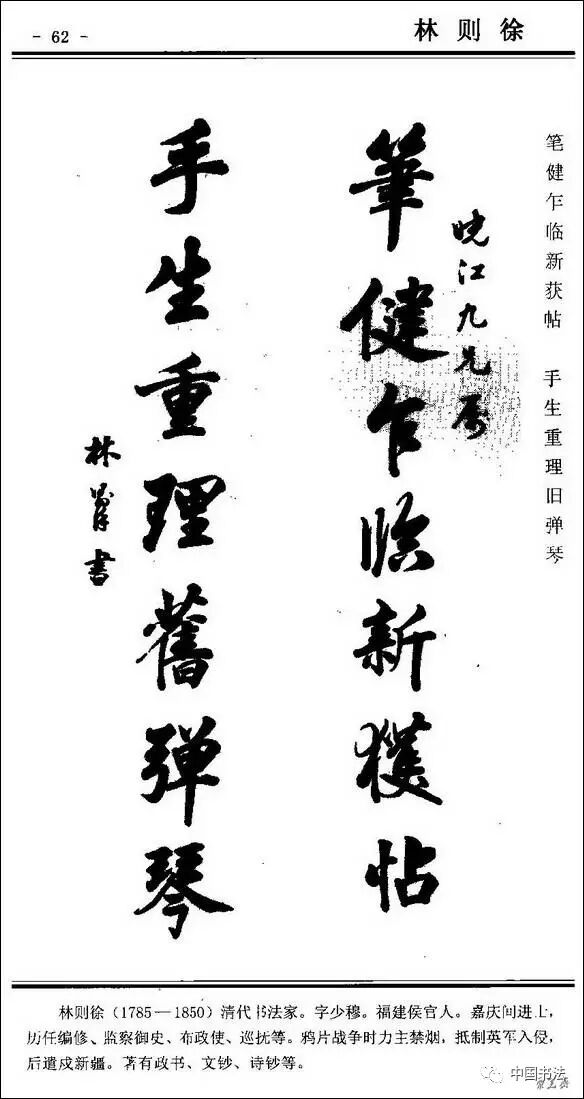 - 62 -
林则徐
笔健乍临新获帖 手生重理旧弹琴
晓江九兄属
筆健乍临新獲帖
手生重理舊弹琴
林则徐书
林则徐(1785—1850)清代书法家。字少穆。福建侯官人。嘉庆间进士,
历任编修、监察御史、布政使、巡抚等。鸦片战争时力主禁烟,抵制英军入侵,
后遣戍新疆。著有政书、文钞、诗钞等。
中国书法